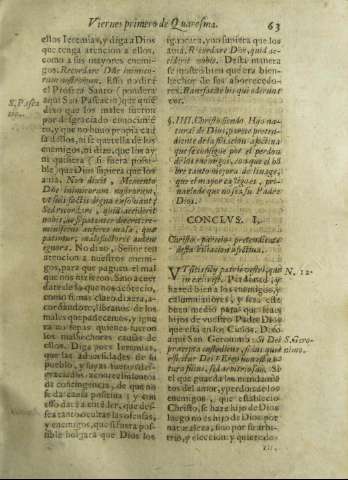 Viernes primero de Quaresma. 63
ellos Ieremias, y diga a Dios
que tenga atencion a ellos,
como a sus mayores enemi-
gos. Recordare Dñe inimico-
rum nostrorum. Esso no dirà
el Profeta Santo (pondera
aqui San Pascasio) que quiē
dixo que los males fueron
por desgraciado
y que no huuo propia cau
sa dellos, ni se querella de los
enemigos, ni dize, que los ay
ni quisiera (si fuera possi-
ble) que Dios supiera que los
auia. Non dixit, Memento
Dñe inimicorum nostrorum,
vt suis factis digna
Sed recordare, quid acciderit
nobis, ac si patenter
pati-
malefactores autem
ignora. No dixo, Señor ten
atencion a nuestros enemi-
gos, para que paguen el mal
que nos hizieron. Sino acuer
date de lo que nos acōtecio,
como si mas claro dixera, a-
cordandote, libranos de los
males que padecemos, y igno
ra no sepas quienes fueron
los malhechores causa de
ellos. Diga pues Ieremias,
que las aduersidades de su
pueblo, y suyas fueron des-
graciados acontecimientos
de contingencia, de que no
se da causa positiua; y con
esso darà a entēder, que des-
sea tanto ocultar las ofensas,
y enemigos, que si fuera pos-
sible holgara que Dios los
S. Pasca
sio.
ignorara, y no supiera que los
auia. Recordare Dñe, quid ac-
ciderit nobis. Desta manera
se mostrò bien que era bien-
hechor de sus aborrecedo-
res. Benefacite his qui oderunt
vos.
§. IIII. Christo siendo Hijo na-
tural de Dios, parece preten-
diente de la filiacion adoptiua
que se consigue por el perdon
de los enemigos, con que el hō
bre tanto mejora de linage,
que el mayor es,
no sea su Padre
Dios.
CONCLVS. I.
Christo parece pretendiente
desta filiacion adoptiua.
VT sitis filij patris vestri, qui
in cælis est. Perdonad, y
hazed bien a los enemigos, y
calumniadores, y serà esta
buen medio para que seais
hijos de vuestro Padre Dios
que està en los Cielos. Dixo
aqui San Geronimo: Si Dei
præcepta custodiens, filius quis
efficitur Dei: Ergo non est na-
tura filius, sed arbitrio suo. Si
el que guarda los mandamiē
tos del amor, y perdon de los
enemigos, que estableciò
Christo, se haze hijo de Dios
luego no es hijo de Dios por
naturaleza, sino por su arbi-
trio, y eleccion: y quierēdo
N. 12.
S. Gero-
nimo.